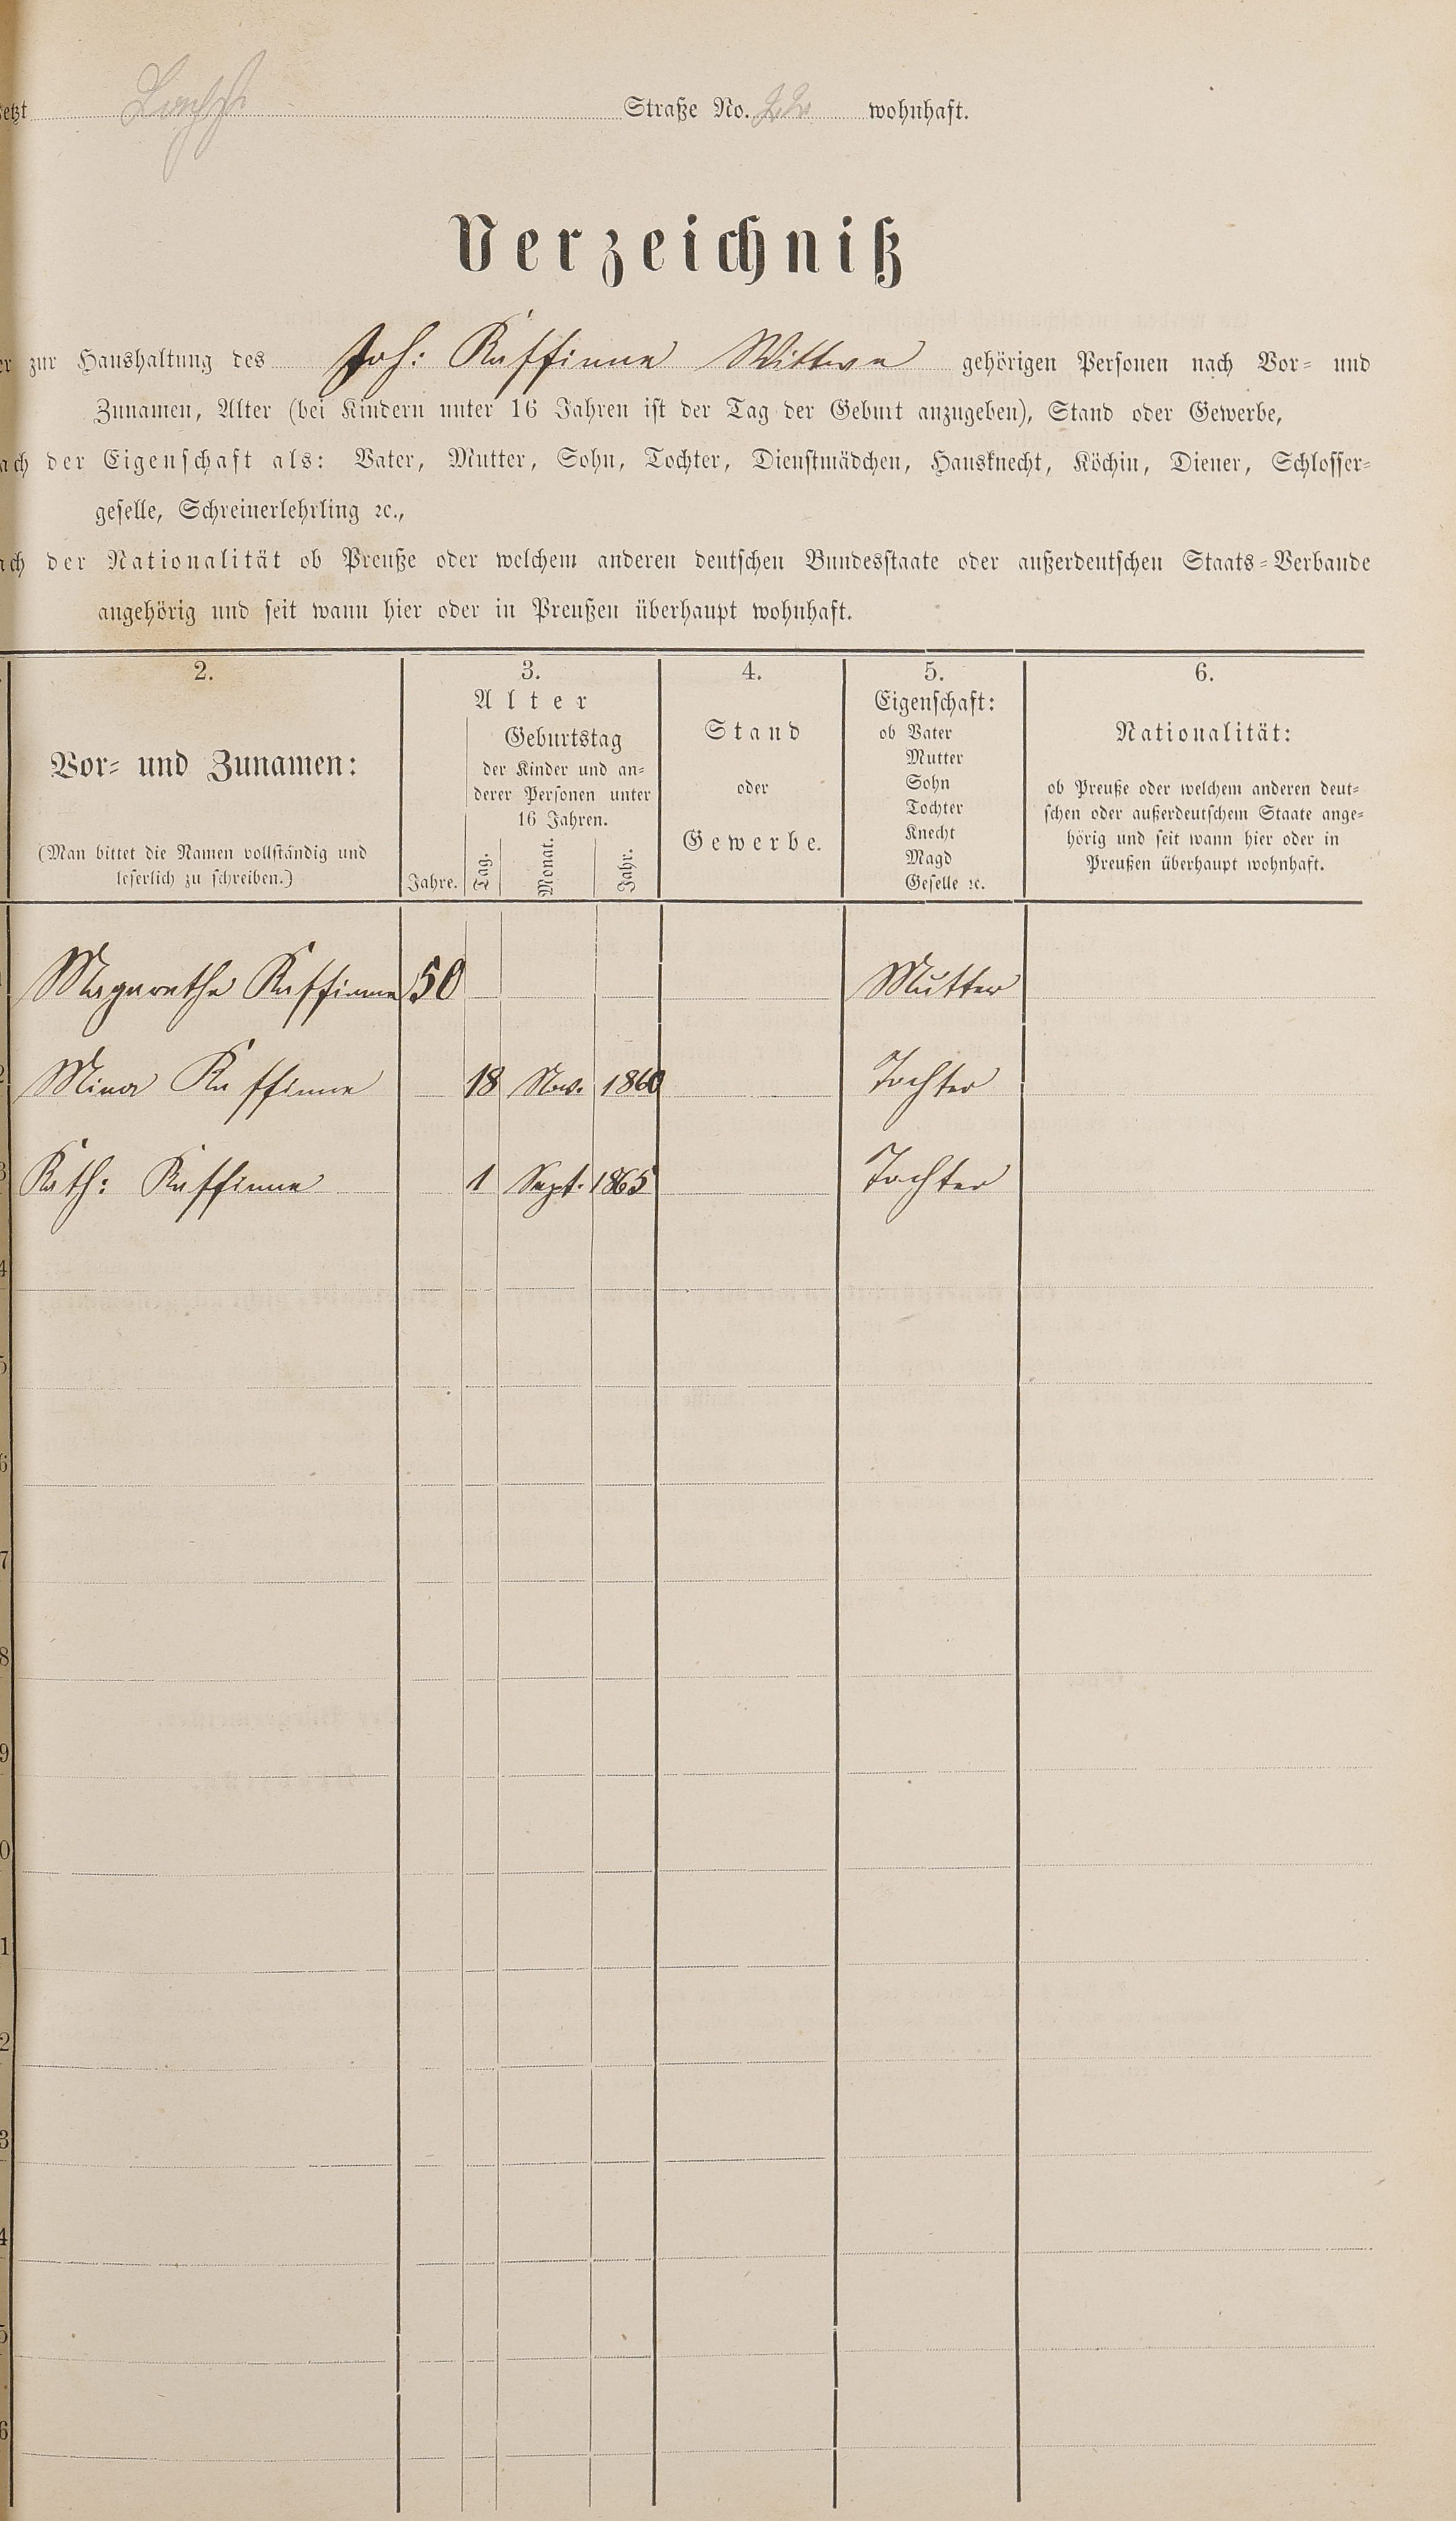 Straße No. 22 wohnhaft.
Verzeichniß
zur Haushaltung des Joh: Kaffinne Wittwe gehörigen Personen nach Vor- und
Zunamen, Alter (bei Kindern unter 16 Jahren ist der Tag der Geburt anzugeben), Stand oder Gewerbe,
der Eigenschaft als: Vater, Mutter, Sohn, Tochter, Dienstmädchen, Hausknecht, Köchin, Diener, Schlosser-
geselle, Schreinerlehrling ꝛc.,
der Nationalität ob Preuße oder welchem anderen deutschen Bundesstaate oder außerdeutschen Staats-Verbande
angehörig und seit wann hier oder in Preußen überhaupt wohnhaft.
2.
Vor- und Zunamen:
(Man bittet die Namen vollständig und
leserlich zu schreiben.)
3.
Alter
Jahre.
Geburtstag
der Kinder und an-
derer Personen unter
16 Jahren.
Tag.
Monat.
Jahr.
4.
Stand
oder
Gewerbe.
5.
Eigenschaft:
ob Vater
Mutter
Sohn
Tochter
Knecht
Magd
Geselle ꝛc.
6.
Nationalität:
ob Preuße oder welchem anderen deut-
schen oder außerdeutschem Staate ange-
hörig und seit wann hier oder in
Preußen überhaupt wohnhaft.
Magarethe Kaffinne 50 Mutter
2 Mina Kaffinne 18 Nov. 1860 Tochter
3 Kath: Kaffinne 1 Sept. 1865 Tochter
4
5
6
7
8
9
0
1
2
3
4
5
6